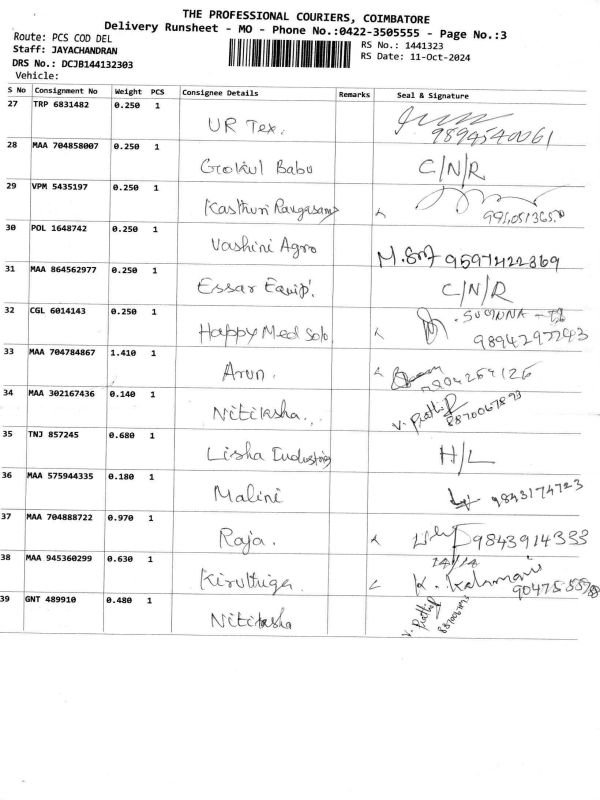 THE PROFESSIONAL COURIERS, COIMBATORE
Delivery Runsheet - MO - Phone No.:0422-3505555 - Page No.:3
Route: PCS COD DEL
RS No.: 1441323
Staff: JAYACHANDRAN
RS Date: 11-Oct-2024
DRS No.: DCJB144132303
Vehicle:
S No Consignment No Weight PCS Consignee Details Remarks Seal & Signature
27 TRP 6831482 0.250 1
UR Tex. 9894540061
28 MAA 704858007 0.250 1
Gokul Babu C/N/R
29 VPM 5435197 0.250 1
Kasthuri Rangasamy
30 POL 1648742 0.250 1
Vashini Agro 9597422869
31 MAA 864562977 0.250 1
Essar Equip. C/N/R
32 CGL 6014143 0.250 1
Happy Med Solo 9894297243
33 MAA 704784867 1.410 1
Arun.
34 MAA 302167436 0.140 1
Nitiksha.. 8870067893
35 TNJ 857245 0.680 1
Lisha Industries H/L
36 MAA 575944335 0.180 1
Malini 9843174723
37 MAA 704888722 0.970 1
Raja. 9843914333
38 MAA 945360299 0.630 1
Kiruthiga
39 GNT 489910 0.480 1
Nitiksha